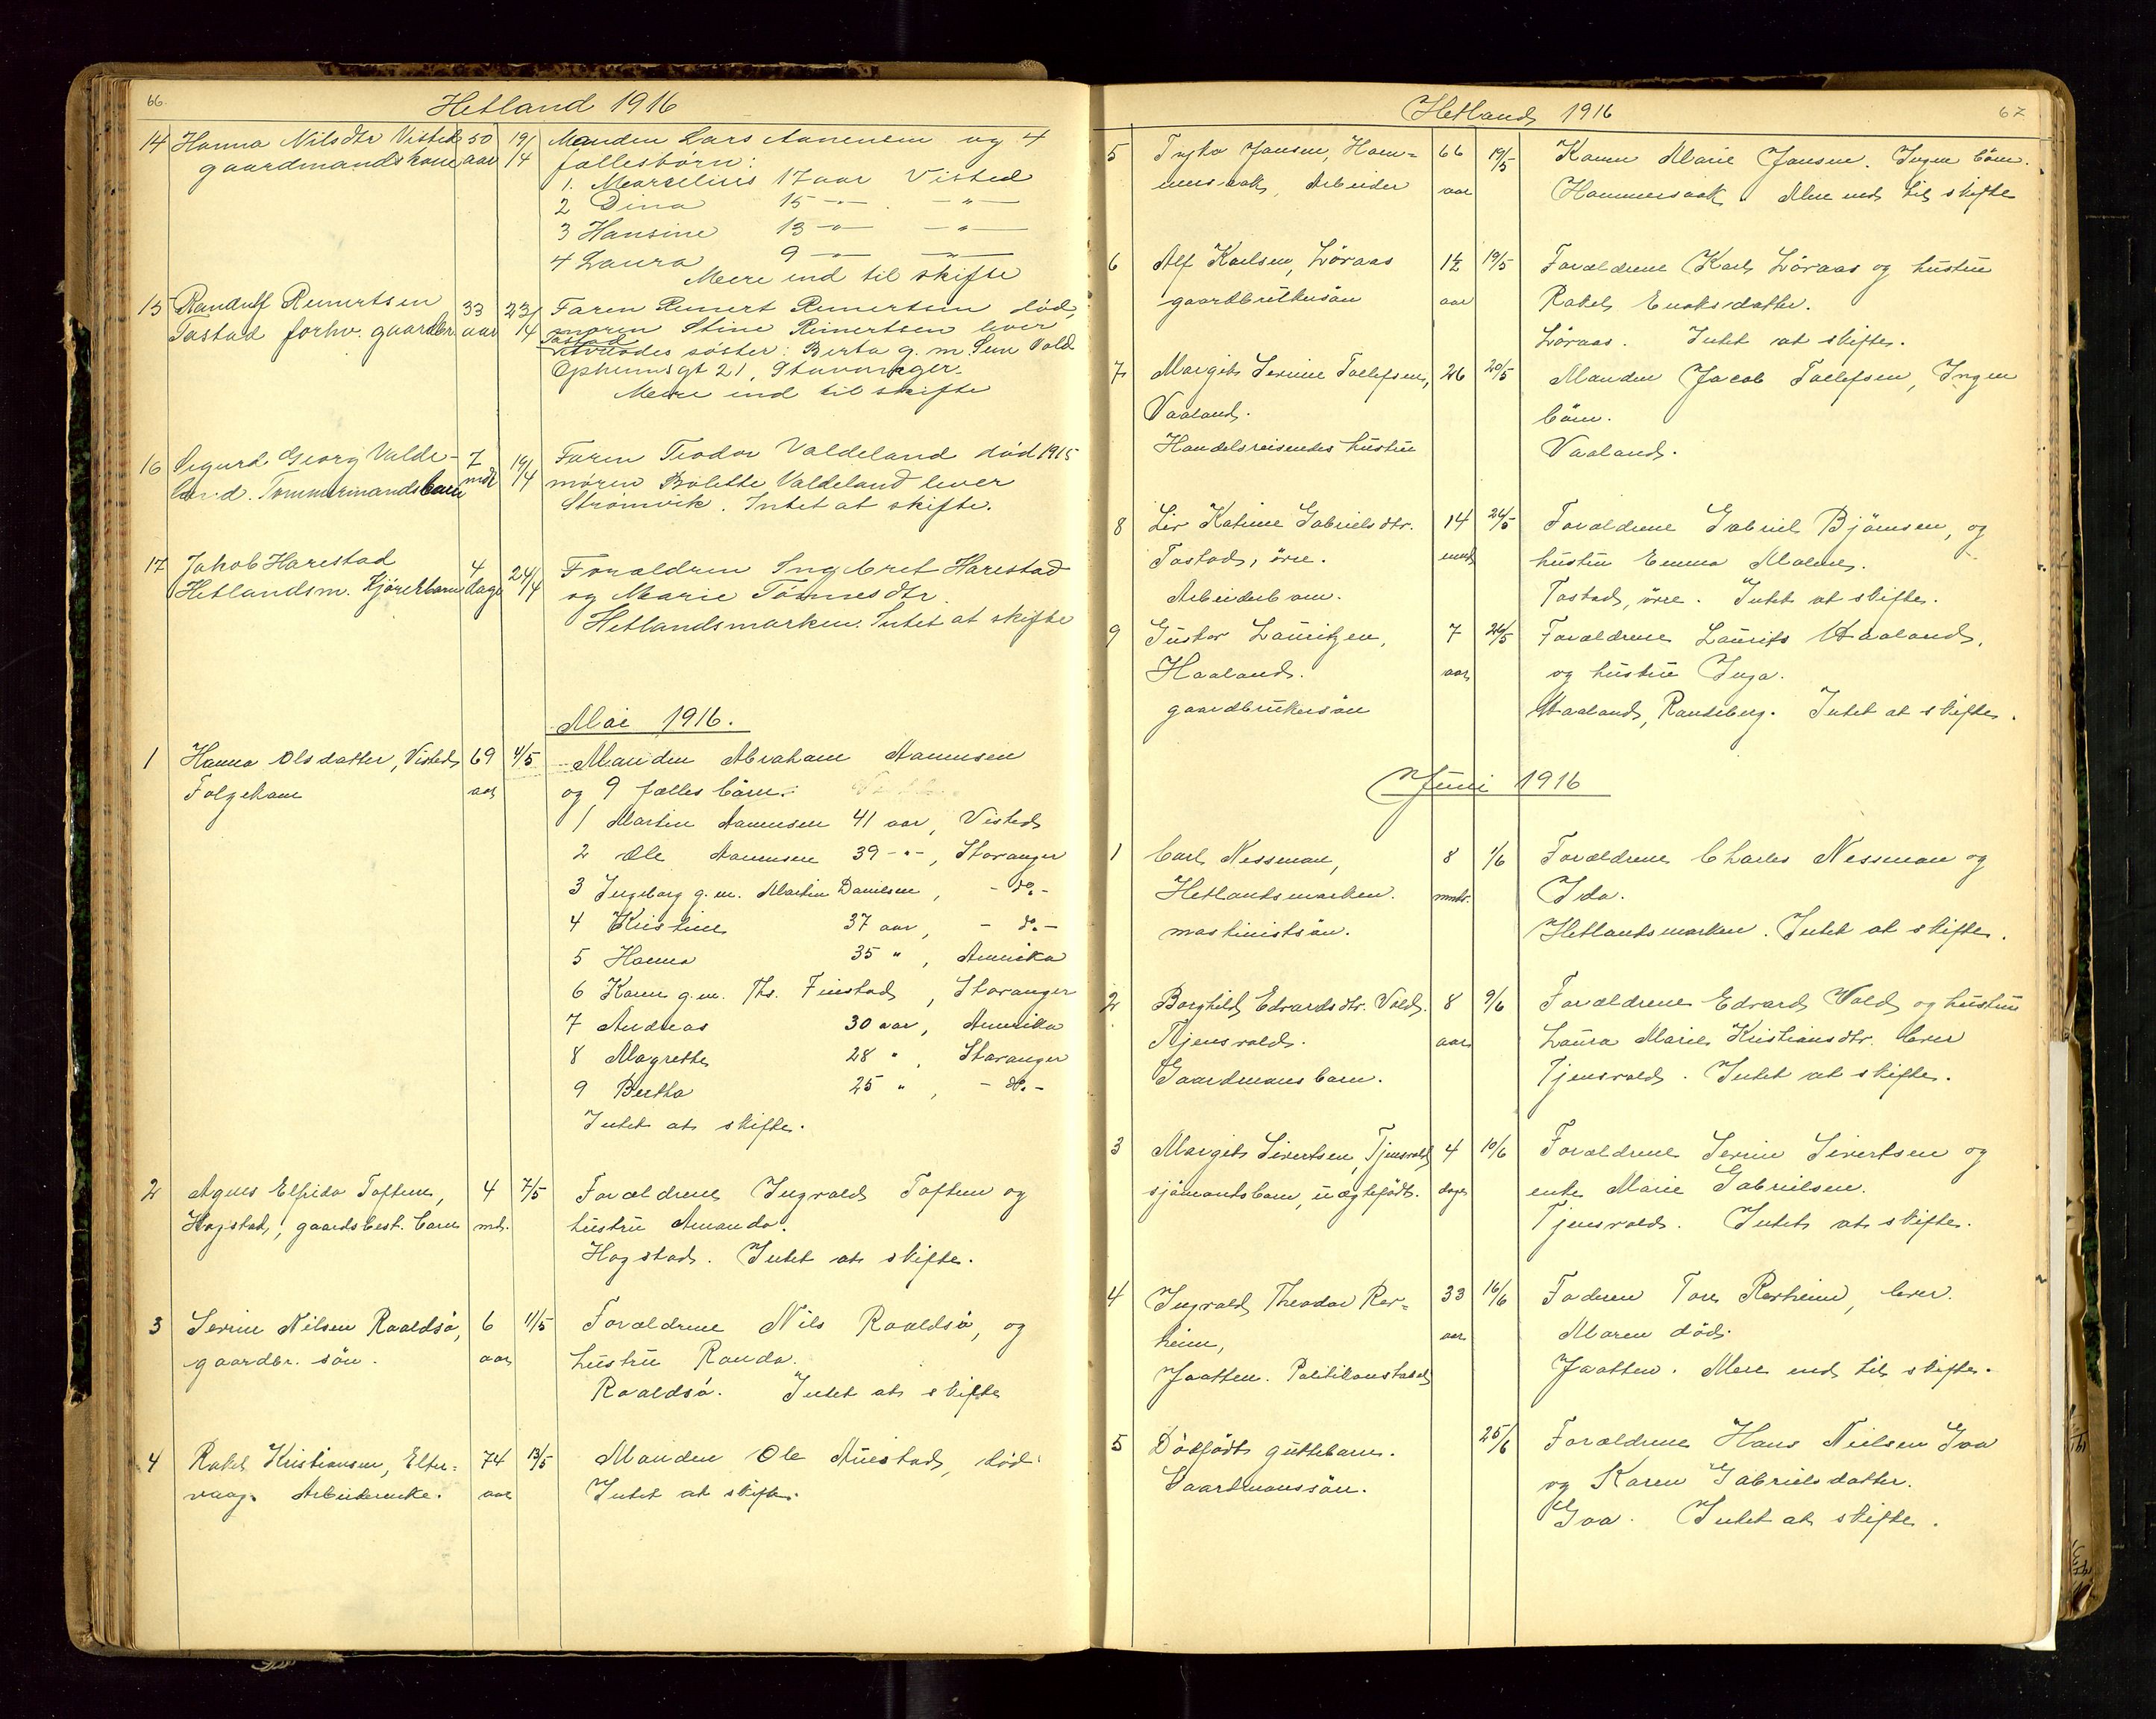 66.
Hetland 1916
14 Hanna Nilsdtr Visted 50 19/ Manden Lars Aanensen og 4
gaardmandskone aar 14 fællesbörn:
1. Marselius 17 aar Visted
2 Dina 15 -"- -"-
3 Hansine 13 -"- -"-
4 Laura 9 -"- -"-
Mere end til skifte
15 Randulf Reinertsen 33 23/ Faren Reinert Reinertsen död,
Tastad forhv. gaardbr. aar 14 moren Stine Reinertsen lever
Tastad
søster: Berta g. m. Sven Vold
gt 21, Stavanger.
Mere end til skifte
16 Sigurd Georg Valde- 7 19/ Faren Teodor Valdeland död 1915
land. Tømmermandsbarn mdr 14 moren Bolette Valdeland lever
Strømvik. Intet at skifte.
17 Jakob Harestad 4 24/ Forældren Ingebret Harestad
Hetlandsm. Kjörerbarn dage 14 og Marie Tönnesdtr.
Hetlandsmarken. Intet at skifte
Mai 1916.
1 Hanna Olsdatter, Visted 69 4/5 Manden Abraham Aanensen
Folgekone aar og 9 fælles börn:
1 Martin Aanensen 41 aar, Visted
2 Ole Aanensen 39 -"-, Stavanger
3 Ingeborg g. m. Martin Danielsen, - do. -
4 Kristine 37 aar, - do. -
5 Hanna 35 ", Amerika
6 Karen g. m. Ths. Finstad, Stavanger
7 Andreas 30 aar, Amerika
8 Magrethe 28 ", Stavanger
9 Bertha 25 ", - do. -
Intet at skifte.
2 Agnes Elfrida Toftem, 4 7/5 Forældrene Ingvald Toftem og
Hogstad, gaardsbest. barn md. hustru Amanda.
Hogstad. Intet at skifte.
3 Serine Nilsen Roaldsö, 6 11/5 Forældrene Nils Roaldsö, og
gaardbr. sön. aar hustru Randa.
Roaldsö. Intet at skifte
4 Rakel Kristiansen, 74 13/5 Manden Ole Austad, död.
vaag. Arbeiderenke. aar Intet at skifte.
Hetland 1916
67
5 Tryka Jansen, Ham= 66 19/5 Konen Marie Jansen. Ingen börn.
mersaak, Arbeider aar Hammersaak. Mere end til skifte
6 Alf Karlsen, Löraas 1½ 19/5 Forældrene Karl Löraas og hustru
gaardbrukersön aar Rakel Enoksdatter.
Löraas. Intet at skifte.
7 Margit Serine Tollefsen, 26 20/5 Manden Jacob Tollefsen, Ingen
Vaaland. börn.
Handelsreisendes hustru Vaaland.
8 Liv Katrine Gabrielsdtr. 14 24/5 Forældrene Gabriel Björnsen, og
Tastad, övre. hustru Emma Malene.
Arbeiderbarn. Tastad, övre. Intet at skifte.
9 Gustav Lauritzen, 7 26/5 Forældrene Laurits Haaland,
Haaland. aar og hustru Inga.
gaardbrukersön Haaland, Randeberg. Intet at skifte.
Juni 1916
1 Carl Nessman, 8 1/6 Forældrene Charles Nessman og
Hetlandsmarken. mndr. Ida.
maskinistsön. Hetlandsmarken. Intet at skifte.
2 Borghild Edvardsdtr. Vold. 8 9/6 Forældrene Edvard Vold og hustru
Tjensvold. aar Laura Marie Kristiansdtr. lever
Gaardmansbarn. Tjensvold. Intet at skifte.
3 Margit Sivertsen, Tjensvold 4 10/6 Forældrene Serin Sivertsen og
sjömandsbarn, uægtefödt. dage enke Marie Gabrielsen.
Tjensvold. Intet at skifte.
4 Ingvald Theodor Rer= 33 16/6 Faderen Tore Rerheim, lever.
heim, aar Moren död.
Jaatten. Politikonstabel Jaatten. Mere end til skifte.
5 Dödfödt guttebarn. 25/6 Forældrene Hans Nielsen Goa
Gaardmanssön. og Karen Gabrielsdatter.
Goa. Intet at skifte.